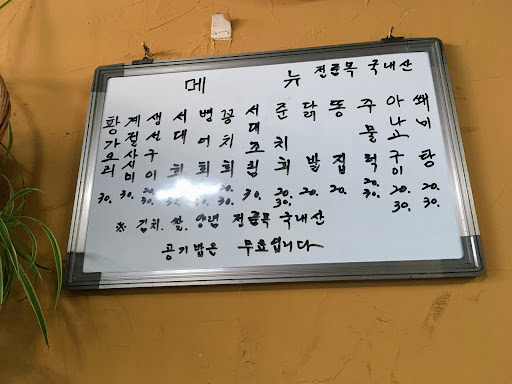 메 뉴 전품목 국내산
황가오리 30.
계절사시미 30.
생선구이 20. 30.
서대회 20. 30.
병어회 30.
꽁치회 20. 30.
서대조림 30.
준치회 20. 30.
닭발 20.
똥집 20.
주물럭 20. 30.
아나고구이 20. 30.
탕 20. 30.
※ 김치. 쌀. 양념 전품목 국내산
공기밥은 무료입니다